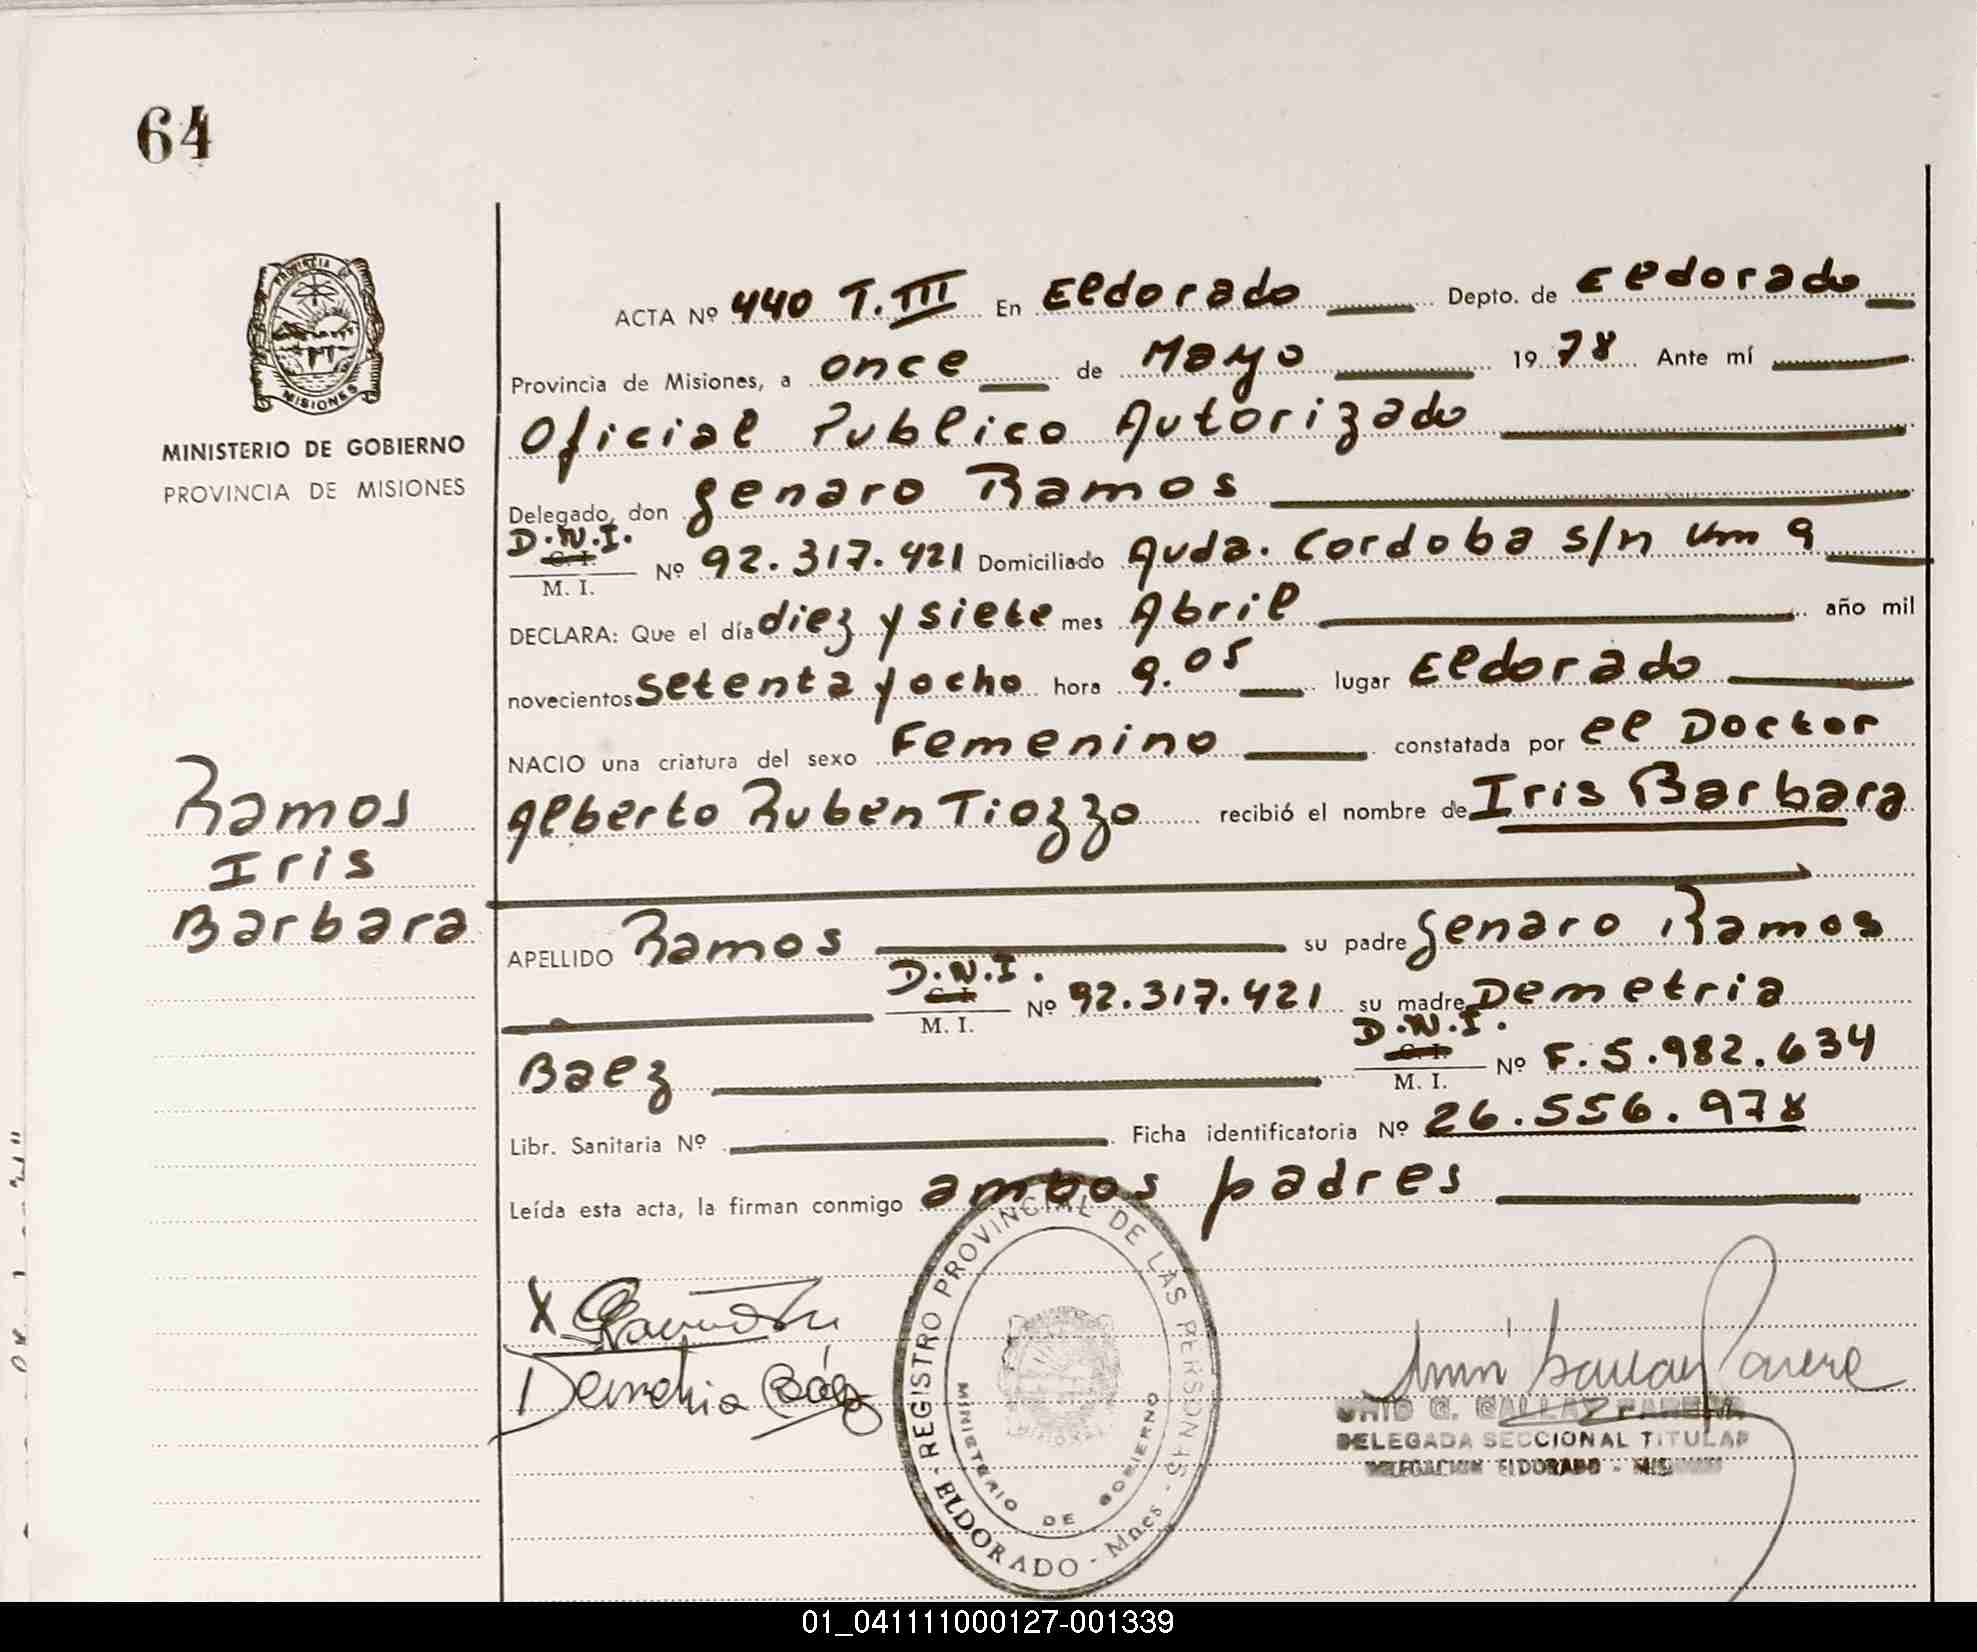 64
PROVINCIA DE
MISIONES
MINISTERIO DE GOBIERNO
PROVINCIA DE MISIONES
ACTA Nº 440 T.III En Eldorado Depto. de Eldorado
Provincia de Misiones, a once de Mayo 1978 Ante mí
Oficial Publico Autorizado
Delegado, don Genaro Ramos
D.N.I.
C. I.
M. I. Nº 92.317.421 Domiciliado Avda. Cordoba s/n Km 9
DECLARA: Que el día diez y siete mes Abril año mil
novecientos setenta y ocho hora 9.05 lugar Eldorado
NACIO una criatura del sexo Femenino constatada por el Doctor
Alberto Ruben Tiozzo recibió el nombre de Iris Barbara
Ramos
Iris
Barbara
APELLIDO Ramos su padre Genaro Ramos
D.N.I.
C. I.
M. I. Nº 92.317.421 su madre Demetria
Baez D.N.I.
C. I.
M. I. Nº F.5.982.634
Libr. Sanitaria Nº Ficha identificatoria Nº 26.556.978
Leída esta acta, la firman conmigo ambos padres
X
Demetria Báez
REGISTRO PROVINCIAL DE LAS PERSONAS - ELDORADO - Mnes -
MINISTERIO DE GOBIERNO
DELEGADA SECCIONAL TITULAR
DELEGACION ELDORADO - MIS
01_041111000127-001339